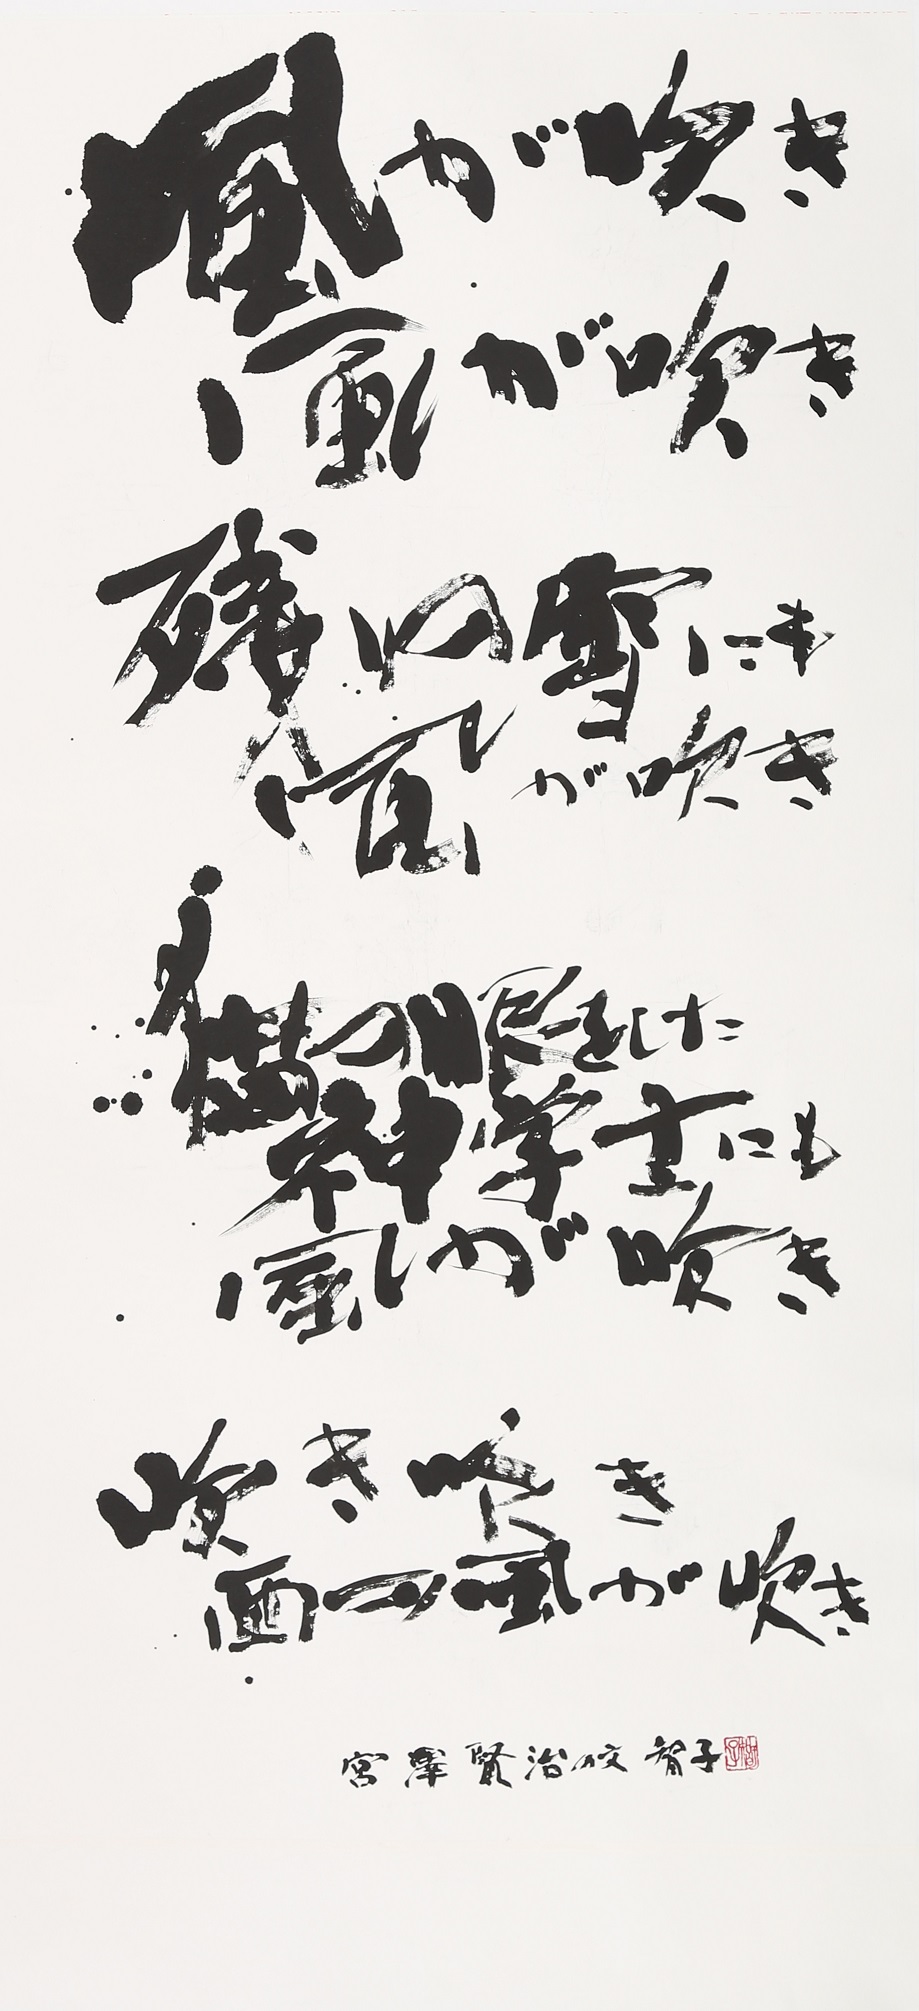 風が吹き
風が吹き
残りの雪にも
風が吹き
猫の眼をした
神学士にも
風が吹き
吹き吹き
西の風が吹き
宮澤賢治の文 智子